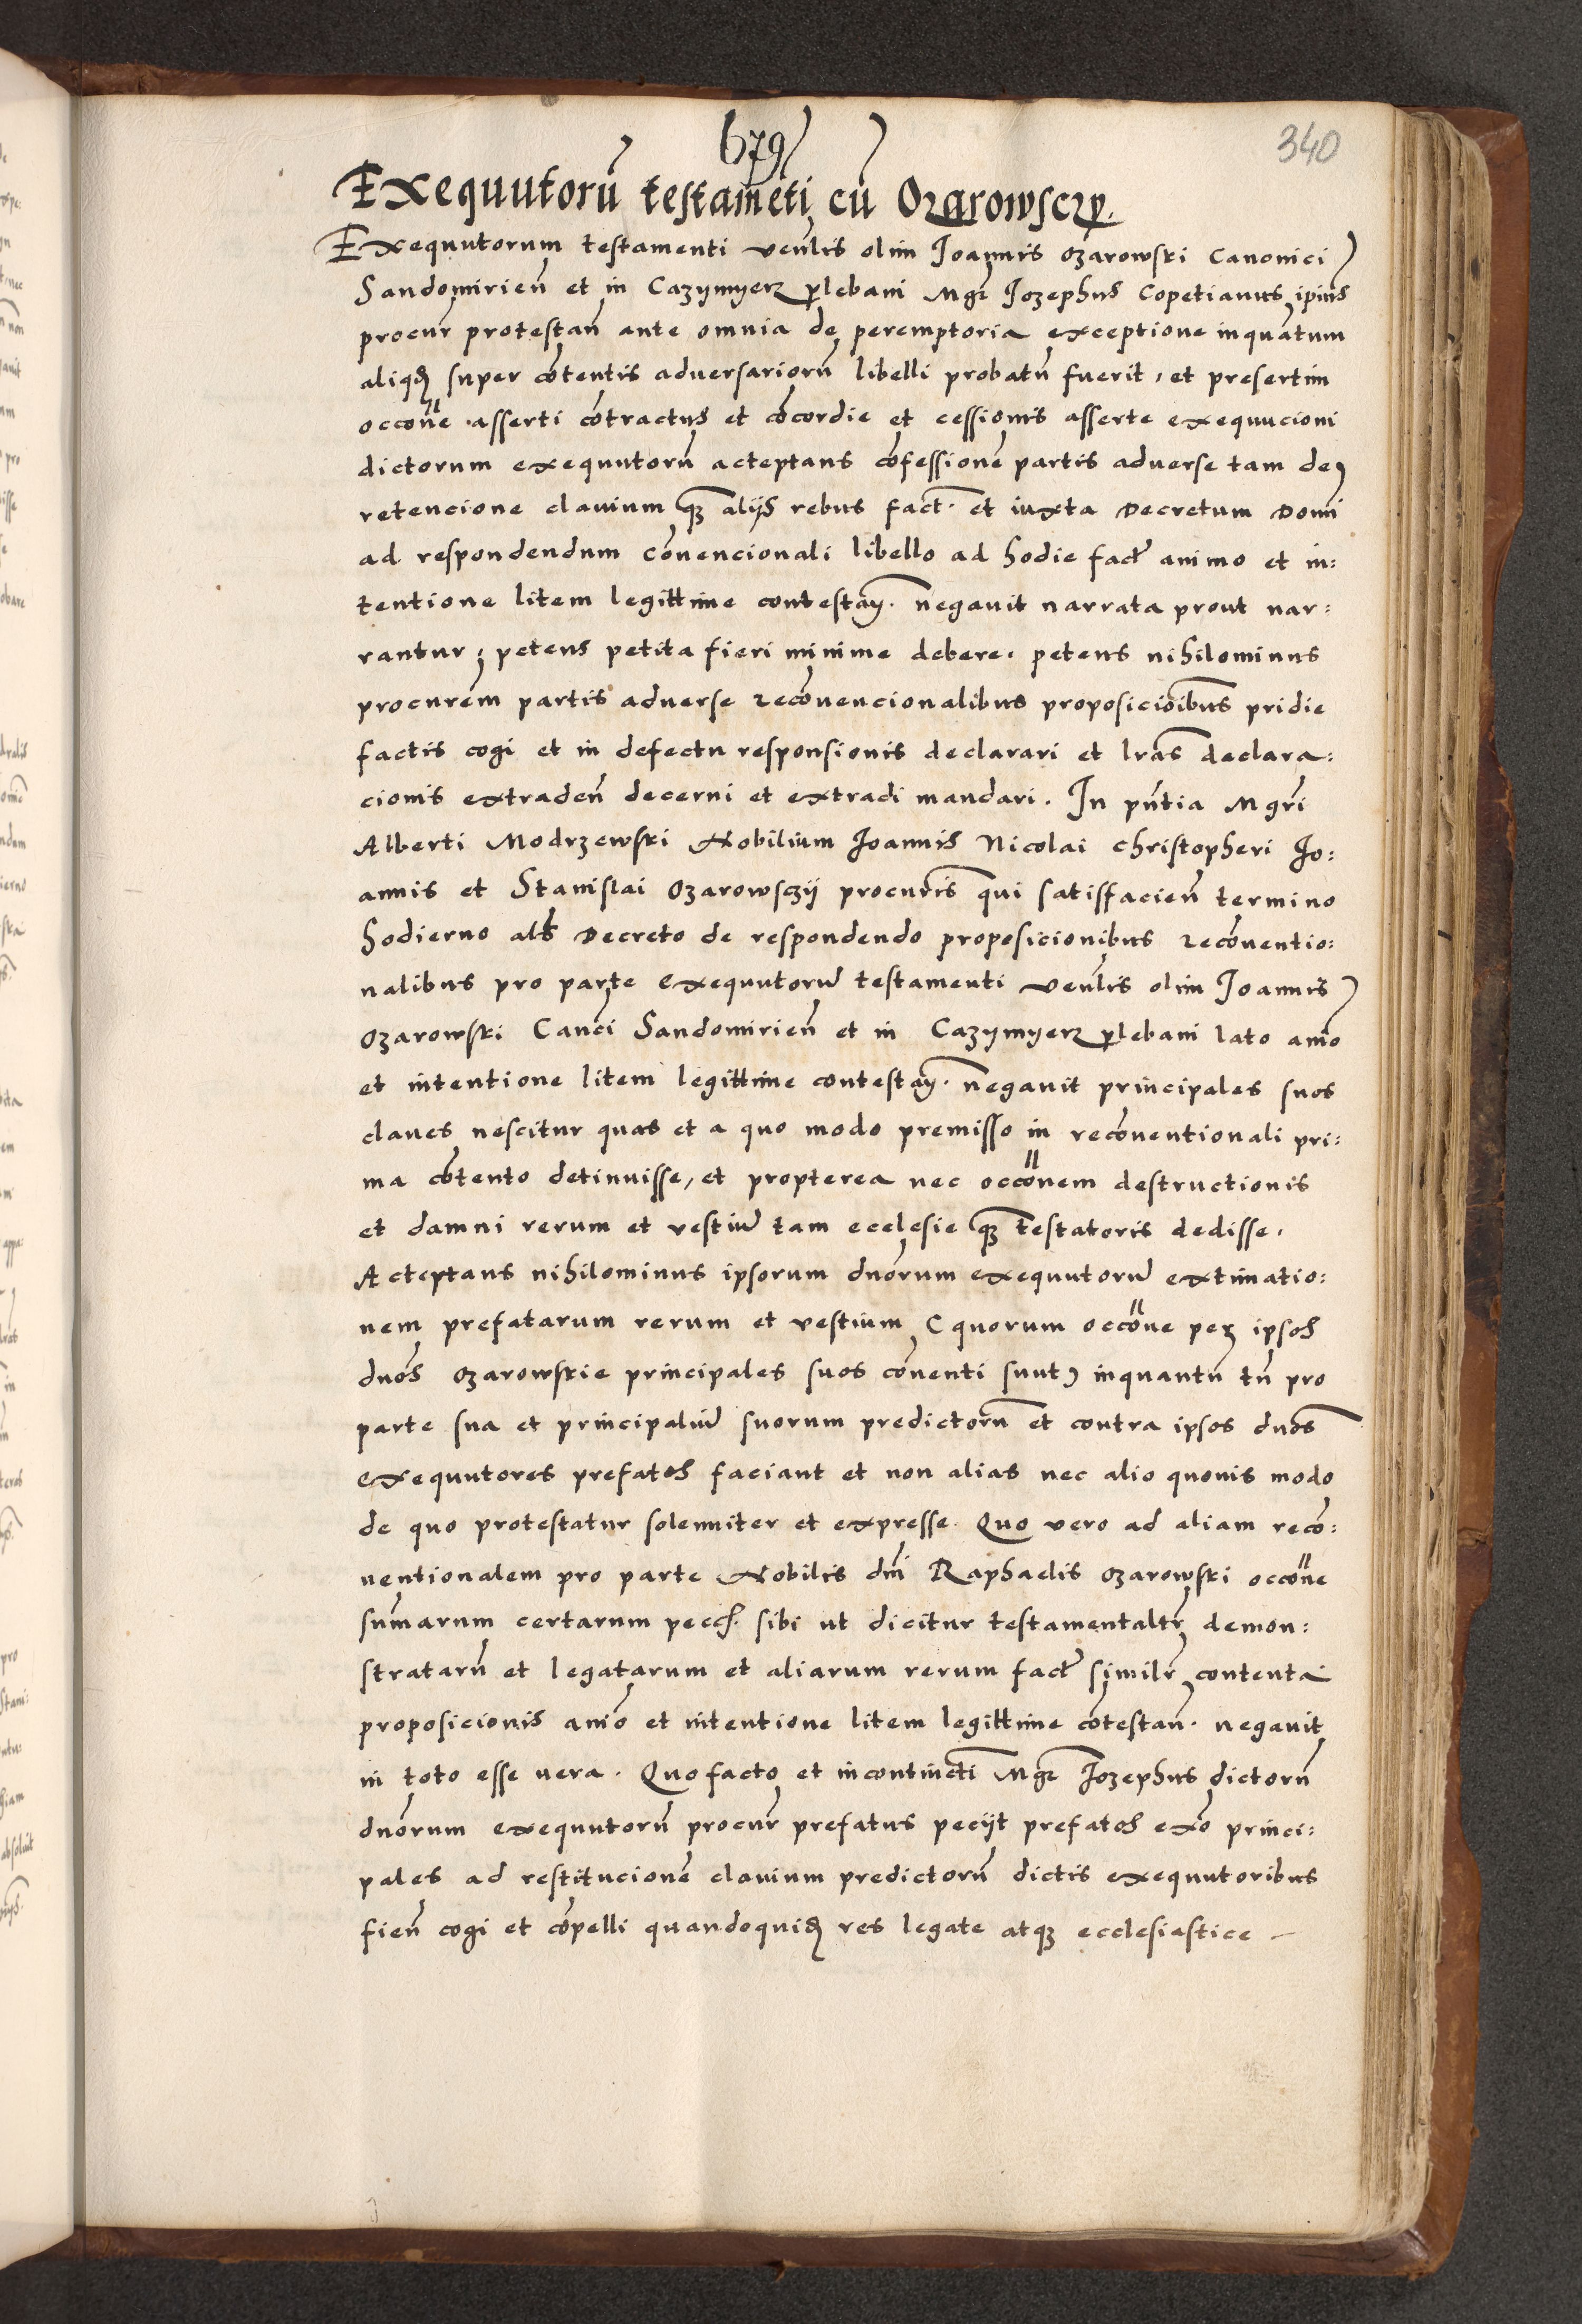 679
340
Exequutorū testamēti cū Ozarowsczy.
Exequutorum testamenti venᷓlis olim Joannis Ozarowski Canonici
Sandomirien̄ et in Cazymyerz plebani Mgr̄ Jozephus Copetianus ipius
procur̄ protestan̄ ante omnia de peremptoria exceptione inquantum
aliqđ super cōtentis adversariorū libelli probatū fuerit, et presertim
occōne asserti cōtractus et cōcordie et cessionis asserte exequucioni
dictorum exequutorū acteptans cōfessionē partis adverse tam de
retencione clavium qʒ alijs rebus fact. et iuxta Decretum Domi
ad respondendum cōvencionali libello ad hodie fact̄ animo et in:
tentione litem legittime contestan̄. negavit narrata prout nar:
rantur, petens petita fieri minime debere. petens nihilominus
procurem̄ partis adverse recōvencionalibus proposiciōibus pridie
factis cogi et in defectu responsionis declarari et lr̄as declara:
cionis extraden̄ decerni et extradi mandari. In pn̄tia Mgr̄i
Alberti Modrzewski Nobilium Joannis Nicolai Christopheri Jo:
annis et Stanislai Ozarowsczij procuris̄ qui satisfacien̄ termino
hodierno als̄ Decreto de respondendo proposicionibus recōventio:
nalibus pro parte exequutorū testamenti venl̄is olim Joannis
Ozarowski Canc̄i Sandomirien̄ et in Cazymyerz plebani lato aīo
et intentione litem legittime contestan̄. negavit principales suos
claves nescitur quas et a quo modo premisso in recōventionali pri:
ma cōtento detinuisse, et propterea nec occōnem destructionis
et damni rerum et vestiū tam ecclesie qʒ testatoris dedisse.
Acteptans nihilominus ipsorum dn̄orum exequutorū extimatio:
nem prefatarum rerum et vestium (quorum occōne per ipsos
dn̄os Ozarowskie principales suos cōventi sunt) inquantū tn̄ pro
parte sua et principaliū suorum predictorū et contra ipsos dn̄os
exequutores prefatos faciant et non alias nec alio quovis modo
de quo protestatur solenniter et expresse. Quo vero ad aliam recō:
ventionalem pro parte Nobilis dn̄i Raphaelis Ozarowski occōne
sum̄arum certarum pecc. sibi ut dicitur testamentaltr̄ demon:
stratarū et legatarum et aliarum rerum fact̄ similr̄ contenta
proposicionis anīo et intentione litem legittime cōtestan̄. negavit
in toto esse vera. Quo facto et incontinēti Mgr̄ Jozephus dictorū
dn̄orum exequutorū procur̄ prefatus pecijt prefatos exō princi:
pales ad restitucionē clavium predictorū dictis exequutoribus
fien̄ cogi et cōpelli quandoquiđ res legate atqʒ ecclesiastice